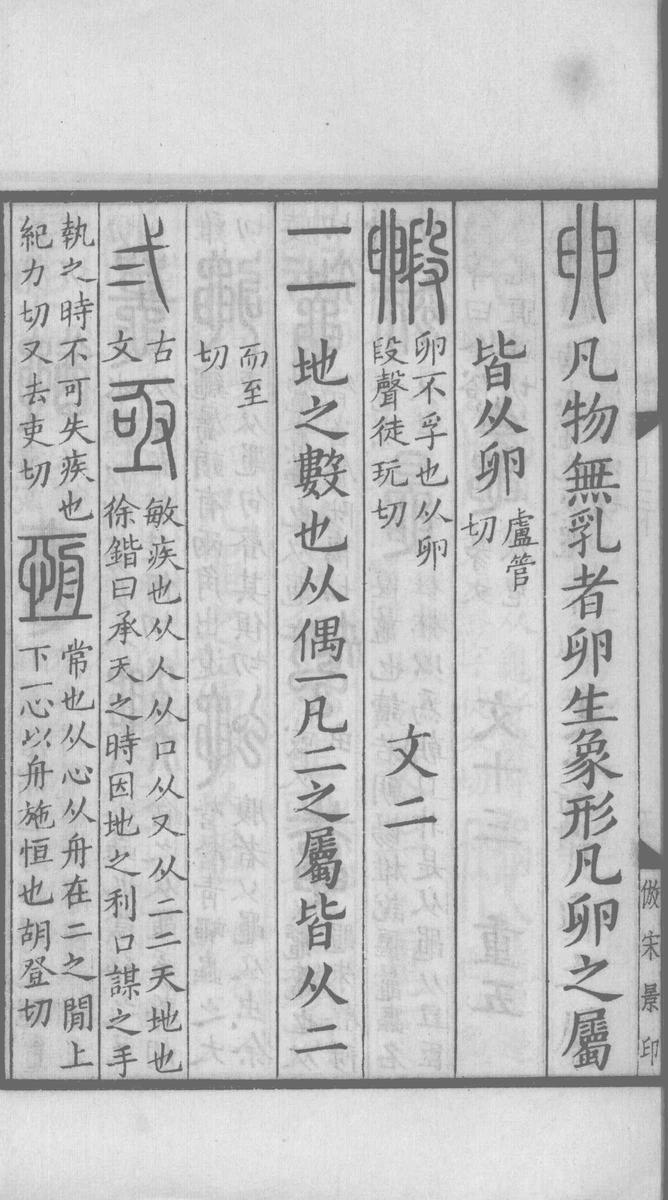 卵凡物無乳者卵生象形凡卵之屬
皆从卵盧管
切
毈卵不孚也从卵
段聲徒玩切
文二
二地之數也从偶一凡二之屬皆从二
而至
切
弍古
文
亟敏疾也从人从口从又从二二天地也
徐鍇曰承天之時因地之利口謀之手
執之時不可失疾也
紀力切又去吏切
恆常也从心从舟在二之閒上
下一心以舟施恒也胡登切
倣宋景印